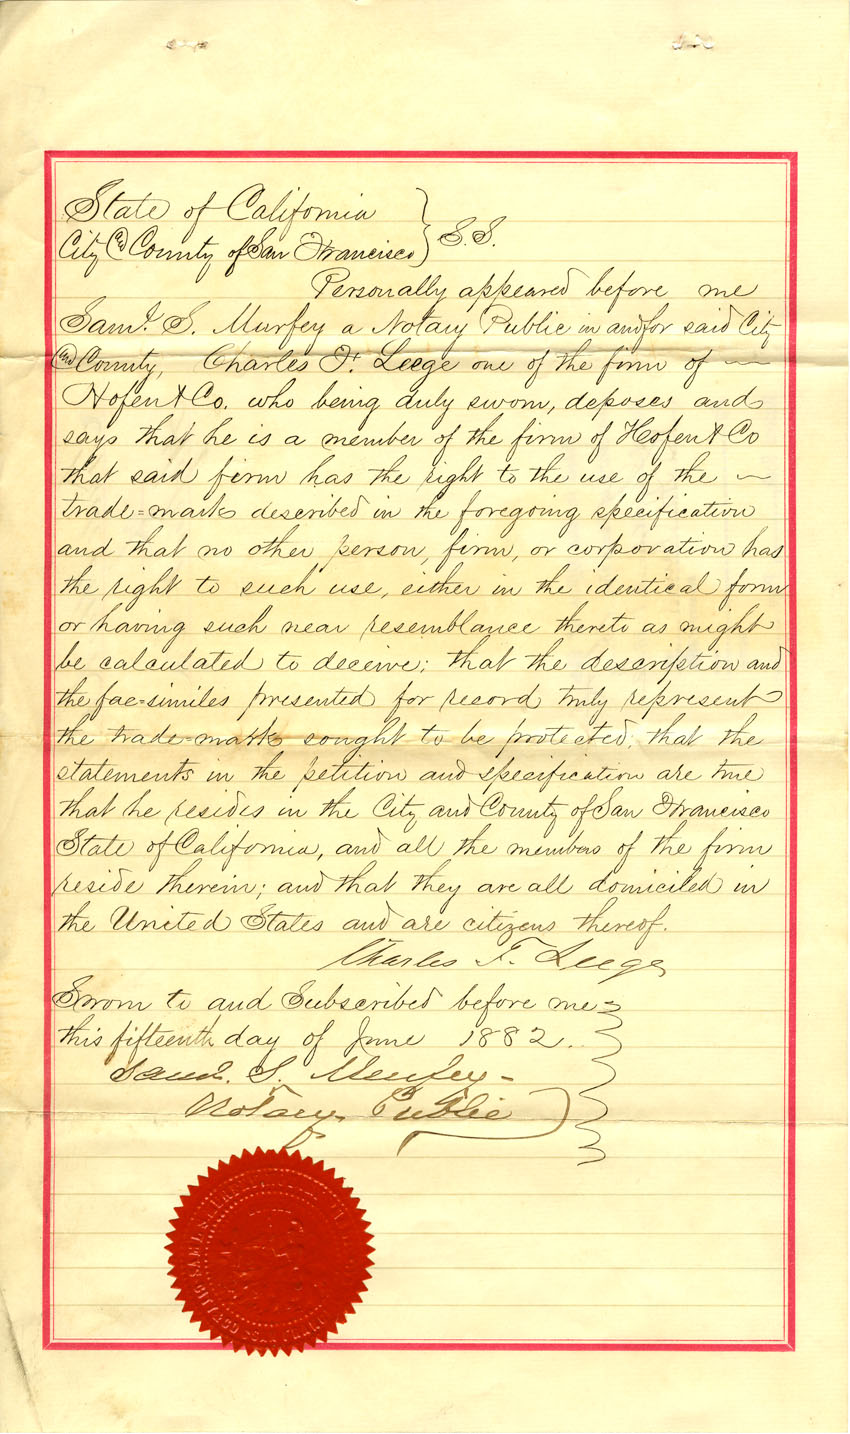 State of California
City and County of San Francisco } S.S.
Personally appeared before me
Saml. S. Murfey a Notary Public in and for said City
and County, Charles F. Leege one of the firm of
Hofen & Co. who being duly sworn, deposes and
says that he is a member of the firm of Hofen & Co
that said firm has the right to the use of the
trade=mark described in the foregoing specification
and that no other person, firm, or corporation has
the right to such use, either in the identical form
or having such near resemblance thereto as might
be calculated to deceive; that the description and
the fac=similes presented for record truly represent
the trade-mark sought to be protected; that the
statements in the petition and specification are true
that he resides in the City and County of San Francisco
State of California, and all the members of the firm
reside therein; and that they are all domiciled in
the United States and are citizens thereof.
Charles F. Leege
Sworn to and Subscribed before me
this fifteenth day of June 1882.
Saml. S. Murfey
Notary Public